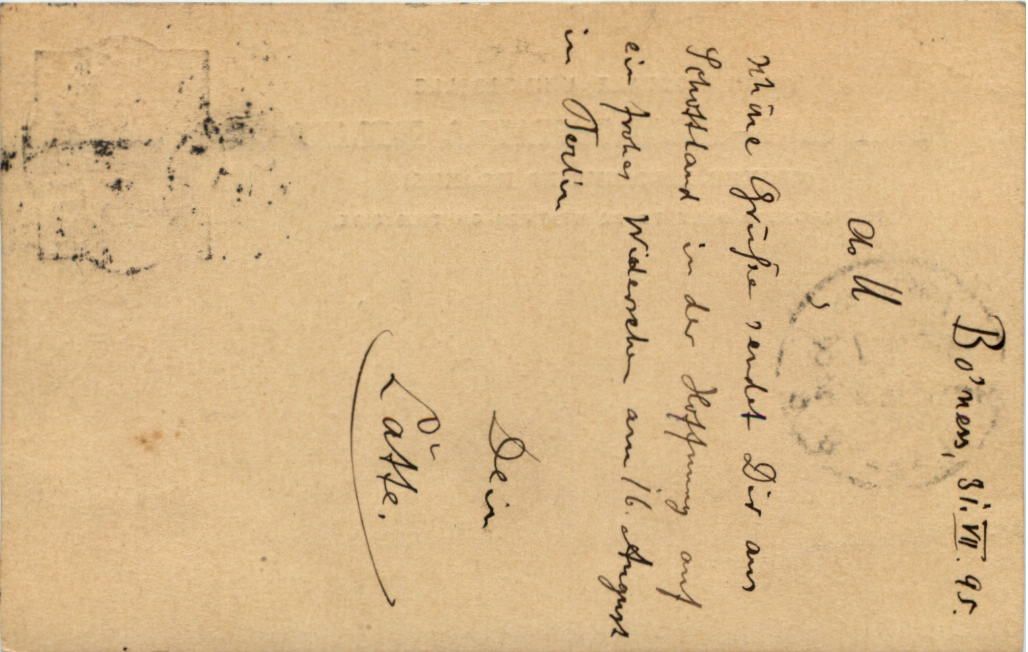 Bo'ness, 31. VII. 95.
schöne Grüße sendet Dir aus
Schottland in der Hoffnung auf
ein frohes Wiedersehen am 16. August
in Berlin
Dein